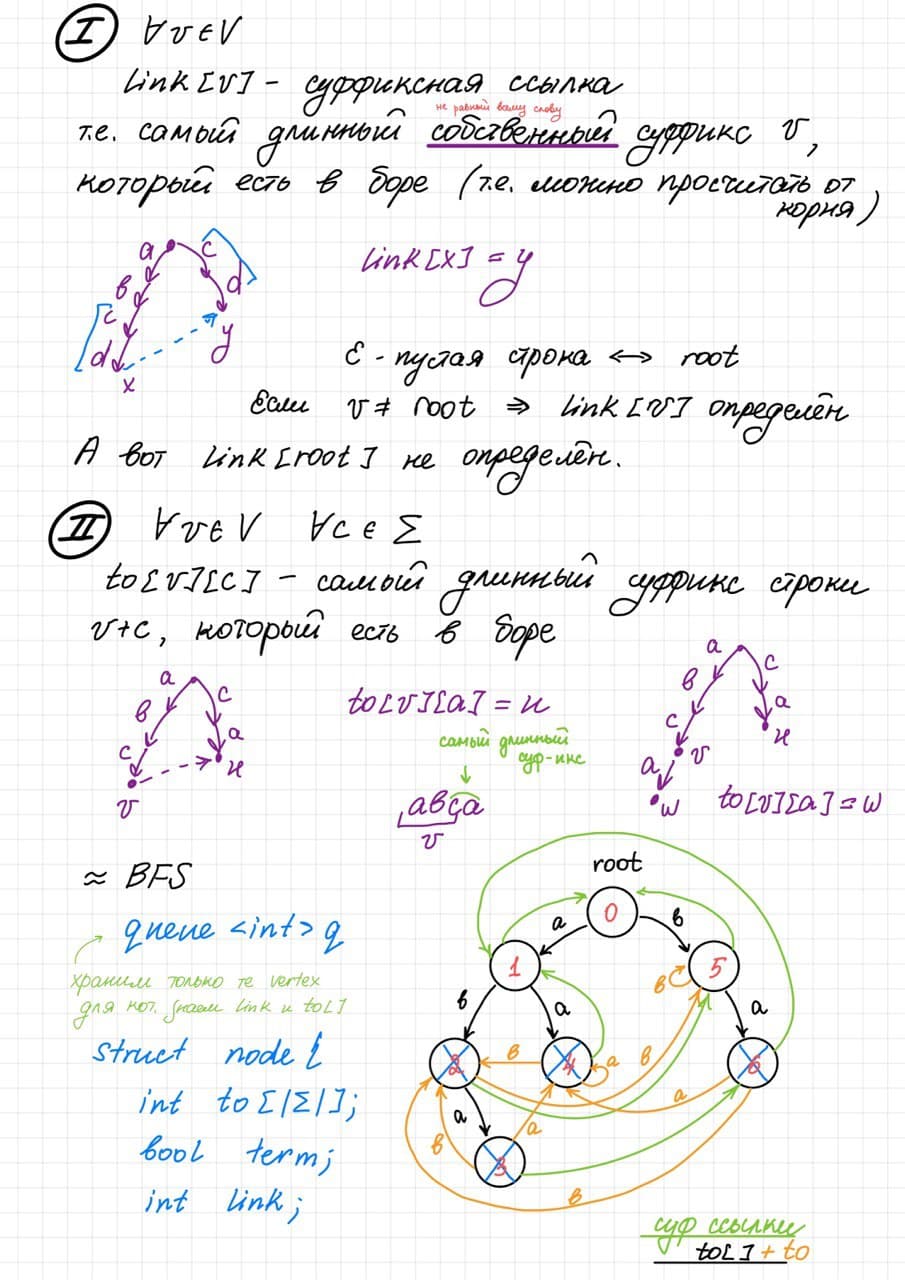 I ∀ v ∈ V
link[v] - суффиксная ссылка
не равный всему слову
т.е. самый длинный собственный суффикс v,
который есть в боре (т.е. можно просчитать от
корня)
a c
b d
c
d y
x
link[x] = y
ε - пустая строка ↔ root
Если v ≠ root ⇒ link[v] определён
А вот link[root] не определён.
II ∀ v ∈ V ∀ c ∈ Σ
to[v][c] - самый длинный суффикс строки
v+c, который есть в боре
a c
b a
c u
v
to[v][a] = u
самый длинный
суф-икс
abca
v
a c
b a
c u
v
a
w
to[v][a] = w
≈ BFS
queue <int> q
храним только те vertex
для кот. знаем link и to[]
struct node {
int to[|Σ|];
bool term;
int link;
root
0
a b
1 5
b
b a a
2 b 4 a b 6
a a a
b
3
b
суф ссылки
to[] + to